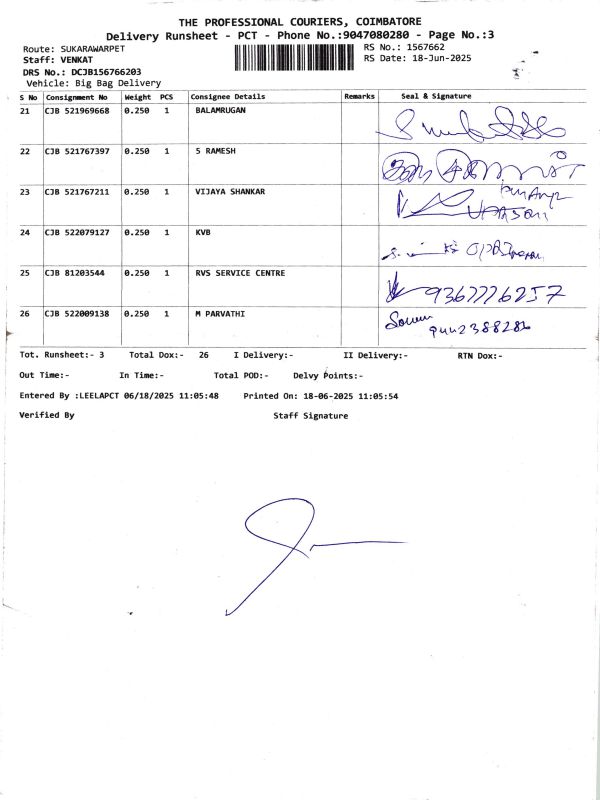 THE PROFESSIONAL COURIERS, COIMBATORE
Delivery Runsheet - PCT - Phone No.:9047080280 - Page No.:3
Route: SUKARAWARPET RS No.: 1567662
Staff: VENKAT RS Date: 18-Jun-2025
DRS No.: DCJB156766203
Vehicle: Big Bag Delivery
S No Consignment No Weight PCS Consignee Details Remarks Seal & Signature
21 CJB 521969668 0.250 1 BALAMRUGAN
22 CJB 521767397 0.250 1 S RAMESH
23 CJB 521767211 0.250 1 VIJAYA SHANKAR
24 CJB 522079127 0.250 1 KVB
25 CJB 81203544 0.250 1 RVS SERVICE CENTRE 9367776257
26 CJB 522009138 0.250 1 M PARVATHI
Tot. Runsheet:- 3 Total Dox:- 26 I Delivery:- II Delivery:- RTN Dox:-
Out Time:- In Time:- Total POD:- Delvy Points:-
Entered By :LEELAPCT 06/18/2025 11:05:48 Printed On: 18-06-2025 11:05:54
Verified By Staff Signature